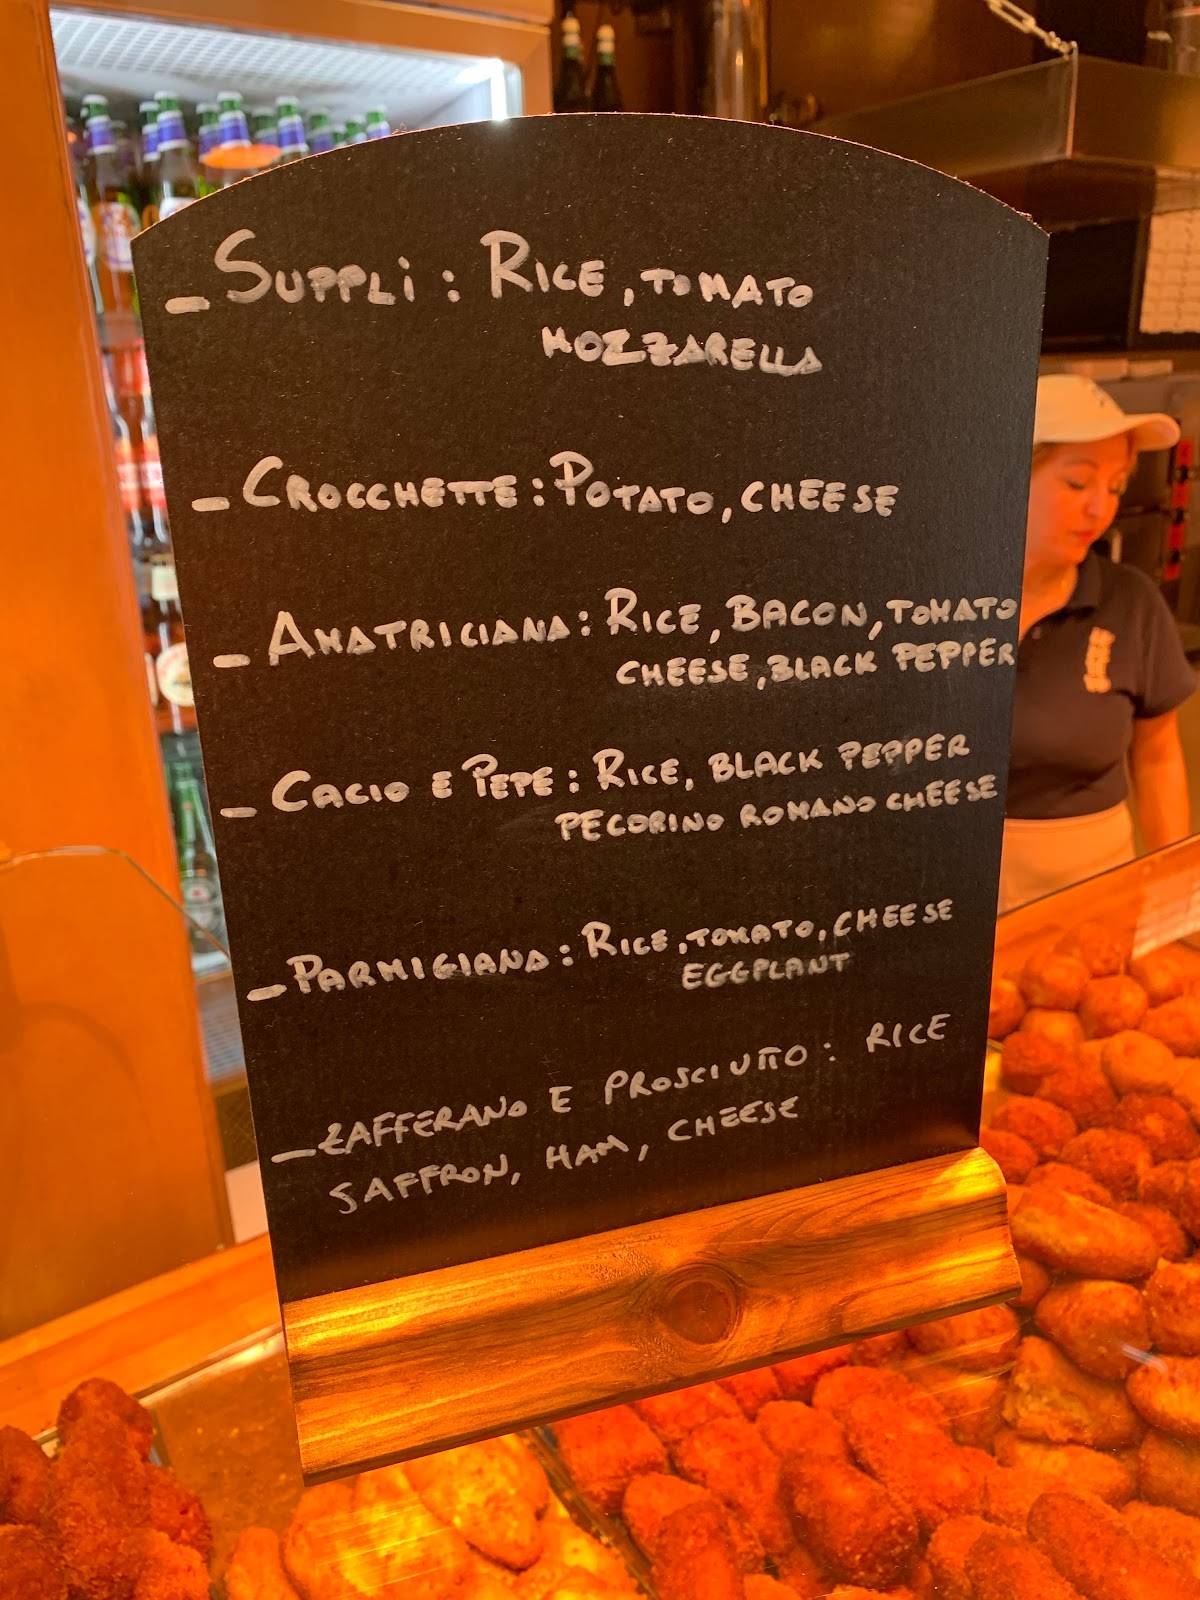 - Supplì: Rice, Tomato
Mozzarella
- Crocchette: Potato, Cheese
- Amatriciana: Rice, Bacon, Tomato
Cheese, Black Pepper
- Cacio e Pepe: Rice, Black Pepper
Pecorino Romano Cheese
- Parmigiana: Rice, Tomato, Cheese
Eggplant
- Zafferano e Prosciutto: Rice
Saffron, Ham, Cheese